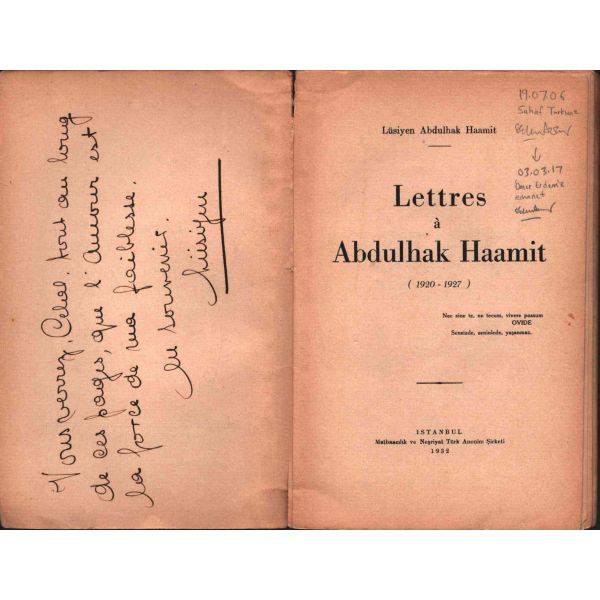 Vous verrez, Celal, tout au long
de ces pages, que l'Amour est
la force de ma faiblesse.
en souvenir.
Lüsiyen
19.07.06
Sahaf Turkuaz
↓
03.03.17
Ömer Erdem'e
emanet
Lüsiyen Abdulhak Haamit
Lettres
à
Abdulhak Haamit
( 1920 - 1927 )
Nec sine te, ne tecum, vivere possum
OVIDE
Sensizde, seninlede, yaşanmaz.
ISTANBUL
Matbaacılık ve Neşriyat Türk Anonim Şirketi
1932